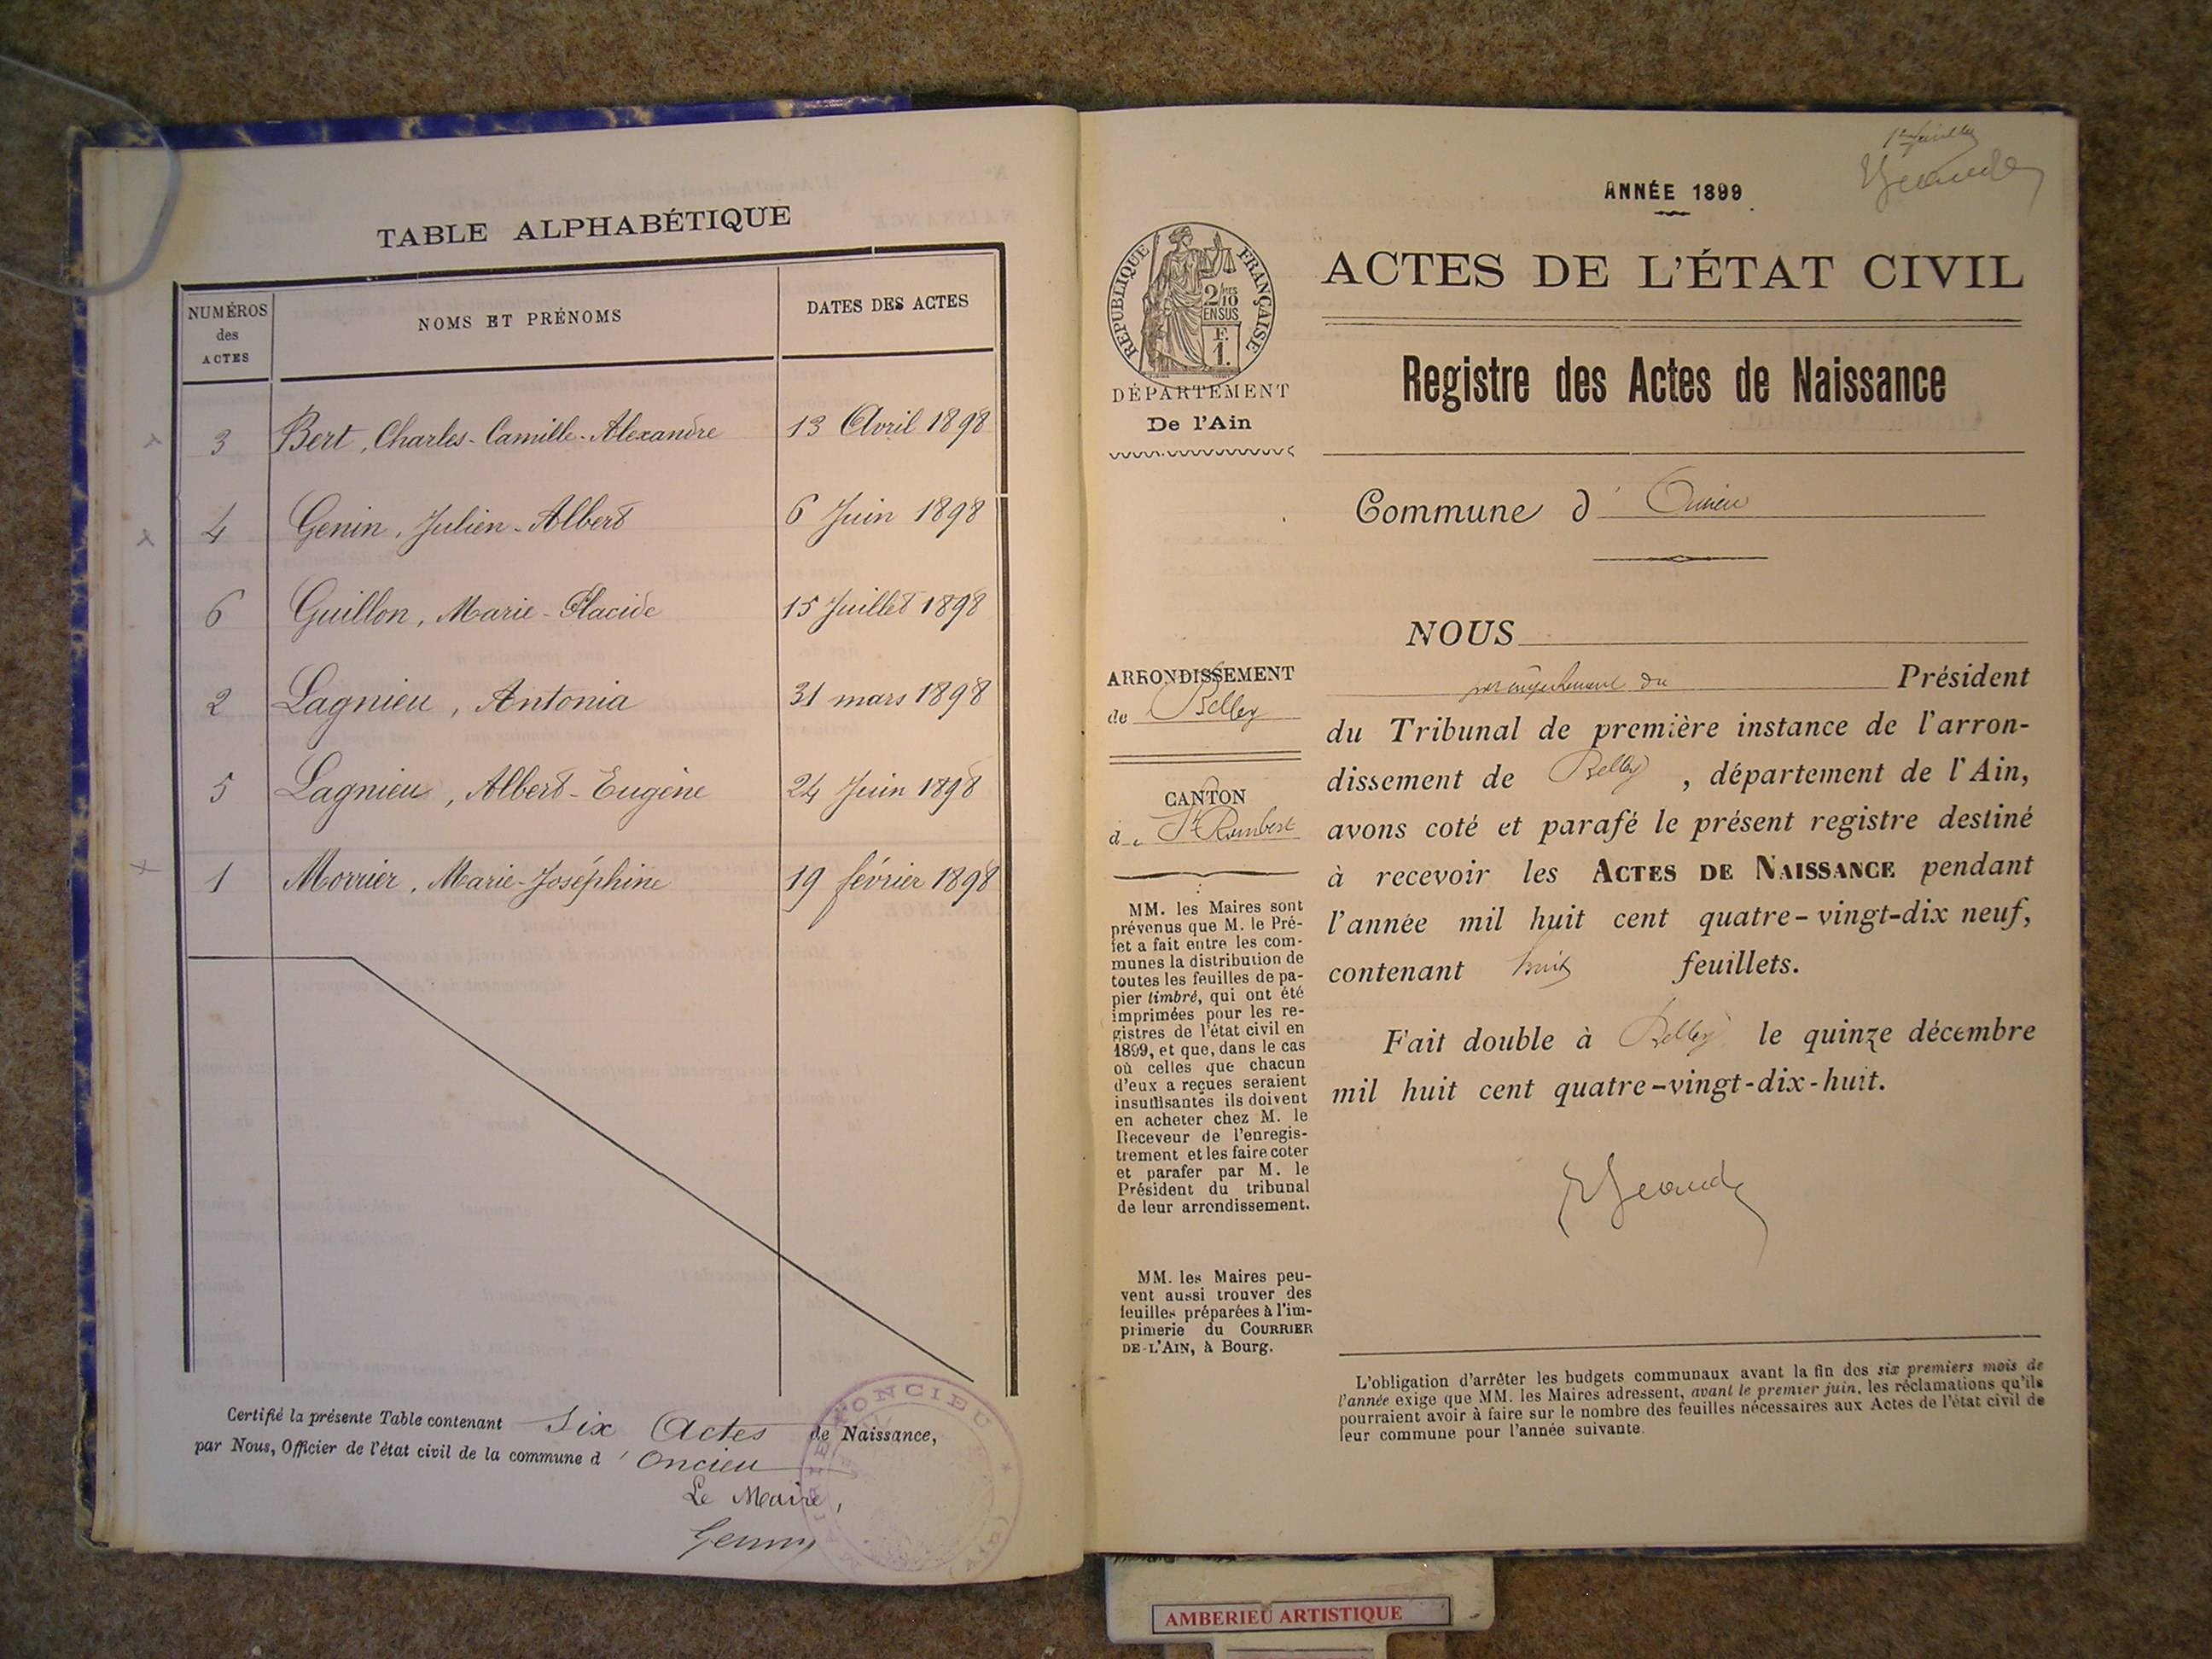 TABLE ALPHABÉTIQUE
NUMÉROS des ACTES
NOMS ET PRÉNOMS
DATES DES ACTES
3 Bert, Charles-Camille-Alexandre 13 Avril 1898
4 Genin, Julien-Albert 6 Juin 1898
6 Guillon, Marie-Placide 15 Juillet 1898
2 Lagnieu, Antonia 31 mars 1898
5 Lagnieu, Albert-Eugène 24 Juin 1898
1 Morrier, Marie-Joséphine 19 février 1898
Certifié la présente Table contenant Six Actes de Naissance,
par Nous, Officier de l'état civil de la commune d'Oncieu
Le Maire,
Genin
MAIRIE D'ONCIEU * (AIN)
1er feuillet
ANNÉE 1899
ACTES DE L'ÉTAT CIVIL
RÉPUBLIQUE FRANÇAISE
2/10 MES
EN SUS
F.
1.
DÉPARTEMENT
De l'Ain
Registre des Actes de Naissance
Commune d'Oncieu
NOUS
ARRONDISSEMENT
de Belley
CANTON
de St Rambert
MM. les Maires sont
prévenus que M. le Pré-
fet a fait entre les com-
munes la distribution de
toutes les feuilles de pa-
pier timbré, qui ont été
imprimées pour les re-
gistres de l'état civil en
1899, et que, dans le cas
où celles que chacun
d'eux a reçues seraient
insuffisantes ils doivent
en acheter chez M. le
Receveur de l'enregis-
trement et les faire coter
et parafer par M. le
Président du tribunal
de leur arrondissement.
MM. les Maires peu-
vent aussi trouver des
feuilles préparées à l'im-
primerie du COURRIER
DE-L'AIN, à Bourg.
par empêchement du Président
du Tribunal de première instance de l'arron-
dissement de Belley, département de l'Ain,
avons coté et parafé le présent registre destiné
à recevoir les ACTES DE NAISSANCE pendant
l'année mil huit cent quatre-vingt-dix neuf,
contenant huit feuillets.
Fait double à Belley le quinze décembre
mil huit cent quatre-vingt-dix-huit.
L'obligation d'arrêter les budgets communaux avant la fin des six premiers mois de
l'année exige que MM. les Maires adressent, avant le premier juin, les réclamations qu'ils
pourraient avoir à faire sur le nombre des feuilles nécessaires aux Actes de l'état civil de
leur commune pour l'année suivante.
AMBERIEU ARTISTIQUE